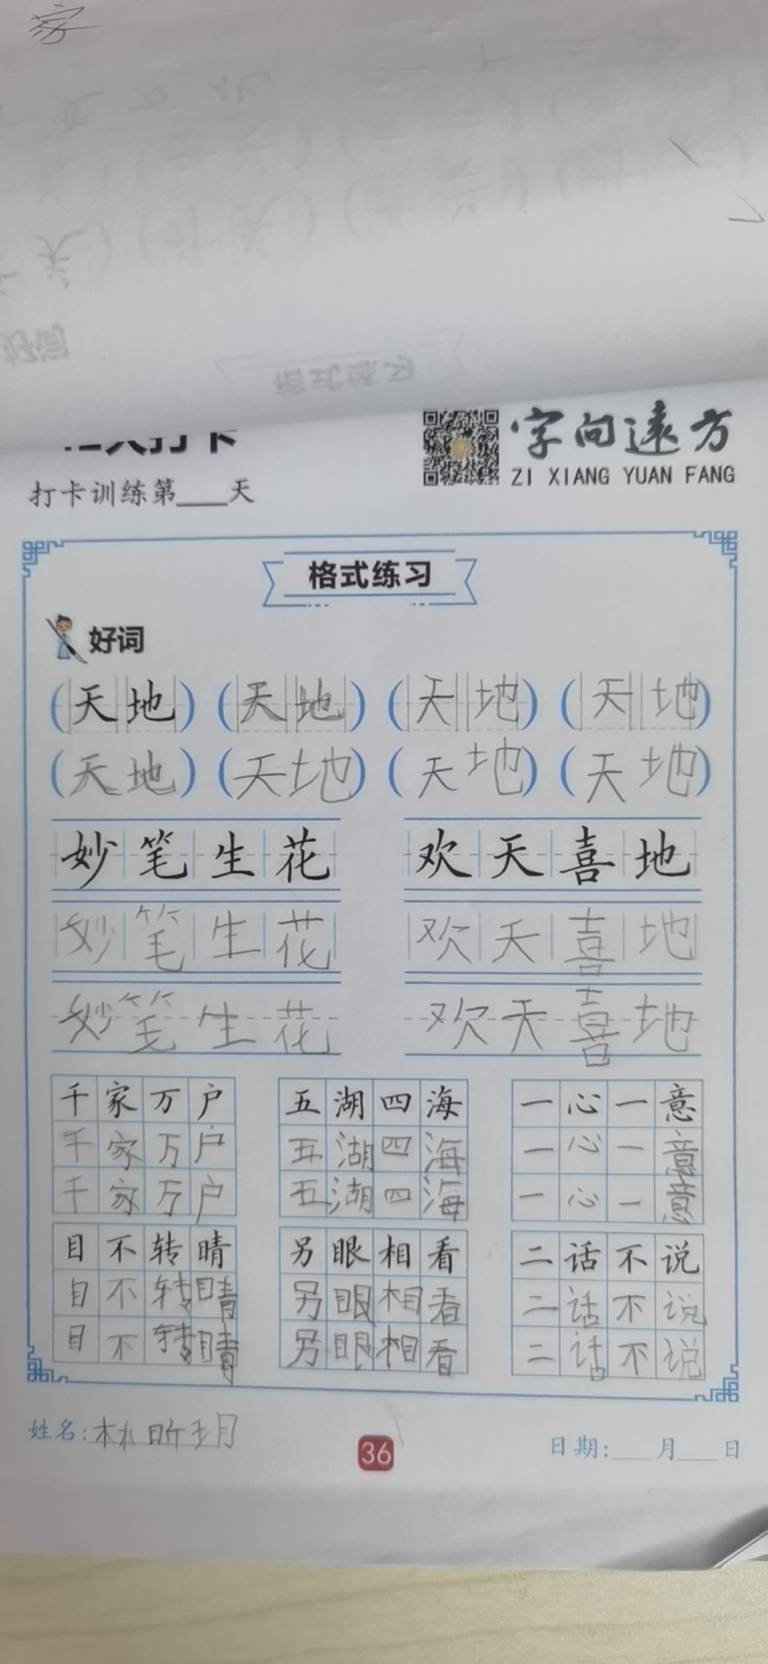 家
字向远方
ZI XIANG YUAN FANG
打卡训练第____天
格式练习
好词
(天地) (天地) (天地) (天地)
(天地) (天地) (天地) (天地)
妙笔生花 欢天喜地
妙笔生花 欢天喜地
妙笔生花 欢天喜地
千家万户 五湖四海 一心一意
千家万户 五湖四海 一心一意
千家万户 五湖四海 一心一意
目不转睛 另眼相看 二话不说
目不转睛 另眼相看 二话不说
目不转睛 另眼相看 二话不说
姓名:林昕玥 36 日期:___月___日